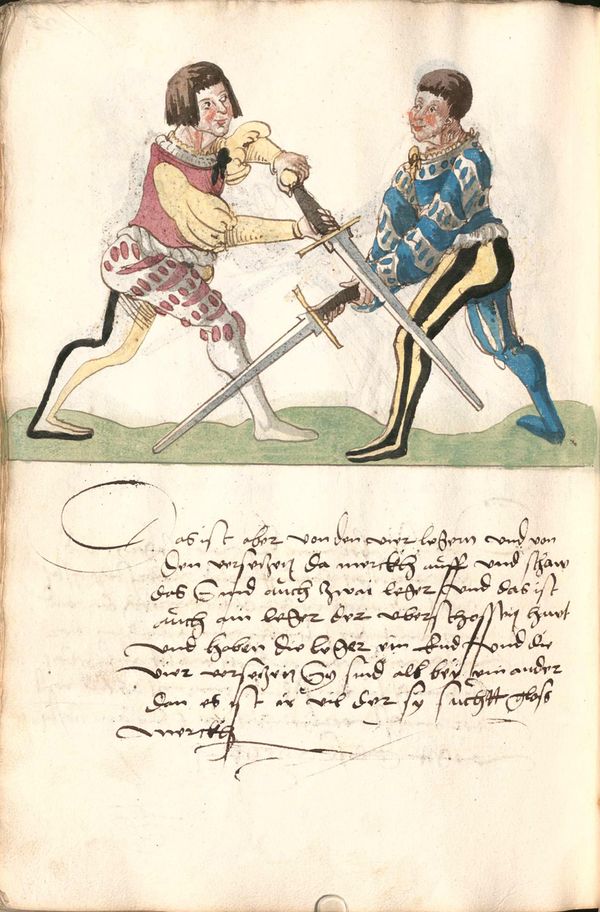 Das ist aber von den vier legern und von
den versetzen da merckh auff und schaw
das sind auch zwai leger und das ist
auch ain leger der uberschossen hut
und haben die leger ein end und die
vier versetzen Sy sind all bey ein ander
dan es ist ir vil der sy suchtt gloss
merckh